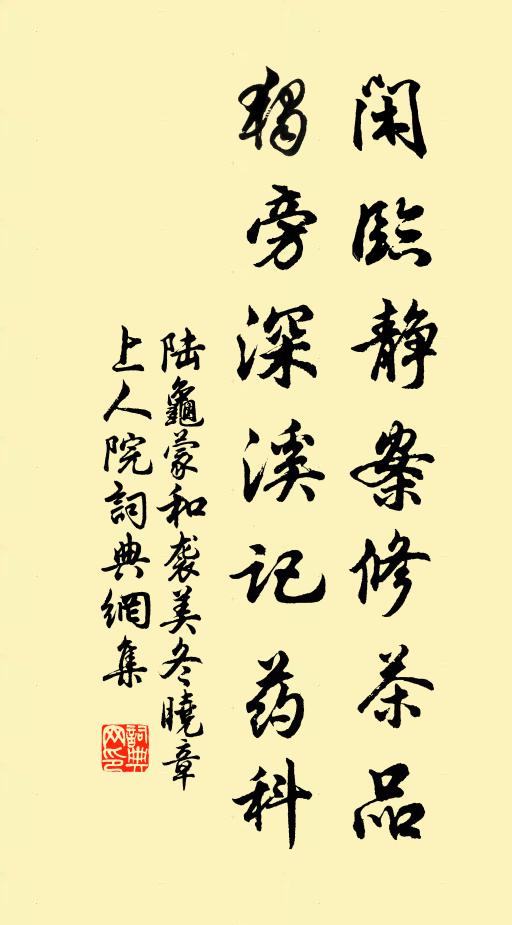 闲临静案修茶品
独旁深溪记药科
陆龜蒙和袭美冬曉章
上人院詞典網集
詞典
网印